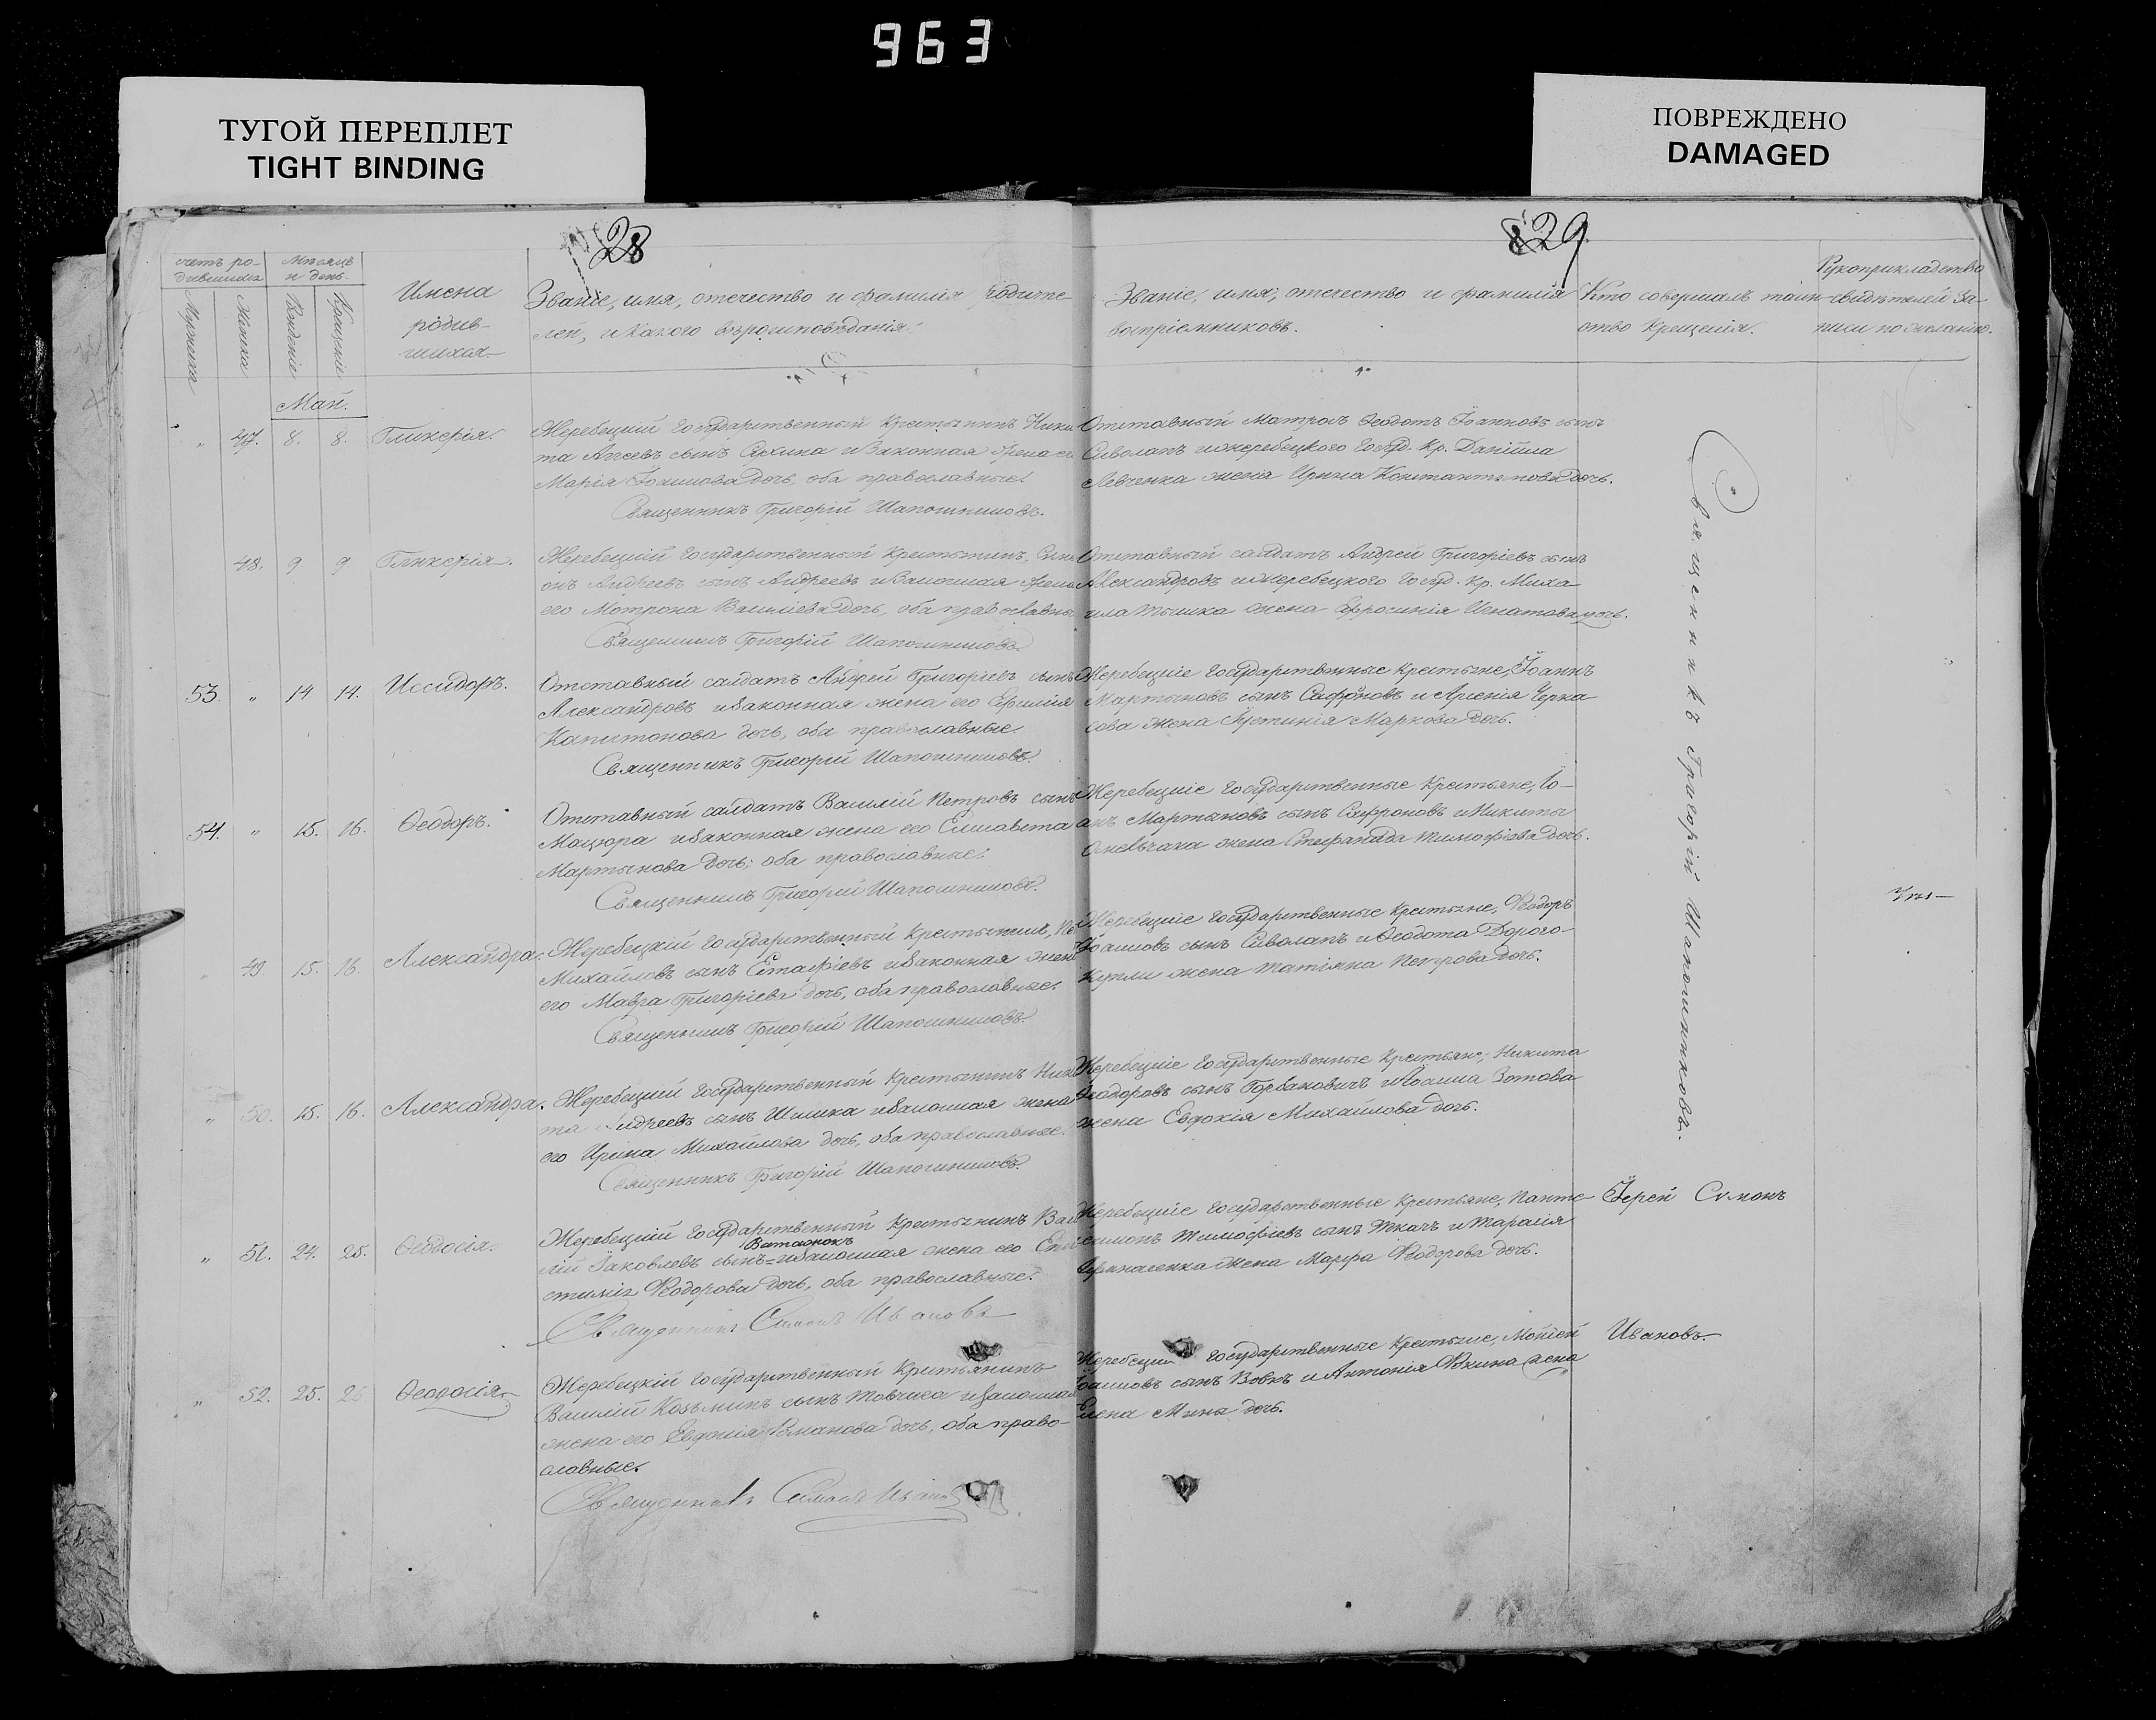 963
ТУГОЙ ПЕРЕПЛЕТ
TIGHT BINDING
ПОВРЕЖДЕНО
DAMAGED
28
29
счетъ ро-
дившихся
Мужеска
Женска
Мѣсяцъ
и день
Рожденіе
Крещеніе
Имена
родив-
шихся
Званіе, имя, отечество и фамилія родите-
лей, и какого вѣроисповѣданія.
Званіе, имя, отечество и фамилія
воспріемниковъ.
Кто совершалъ таин-
ство крещенія.
Рукоприкладство
свидѣтелей за-
писи по желанію.
Май.
„ 47. 8. 8. Гликерія.
Жеребецкій государственный крестьянинъ Ники
та сынъ и законная жена
Марія Іоаннова дочь, оба православные.
Священникъ Григорій Шапошниковъ.
Отставный Матросъ Ѳеодотъ Іоанновъ сынъ
Сиволапъ и жеребецкого Госуд. Кр. Даніила
Левченка жена Ирина Константинова дочь.
48. 9 9 Гликерія.
Жеребецкій государственный крестьянинъ,
онъ Андреевъ сынъ Андреевъ и законная жена
его Мотрона Василіева дочь, оба православны
Священникъ Григорій Шапошниковъ
Отставный солдатъ Андрей Григоріевъ сынъ
Александровъ и жеребецкого Госуд. Кр. Миха-
ила жена Ефросинія Игнатова дочь.
53. „ 14 14. Исидоръ.
Отставный салдатъ Андрей Григоріевъ сынъ
Александровъ и законная жена его
Капитонова дочь, оба православные.
Священникъ Григорій Шапошниковъ.
Жеребецкіе государственные крестьяне, Іоаннъ
Мартыновъ сынъ Сафроновъ и Арсенія Черка-
сова жена Іустинія Маркова дочь.
54. „ 15. 16. Ѳеодоръ.
Отставный салдатъ Василій Петровъ сынъ
Мацюра и законная жена его Елисавета
Мартынова дочь; оба православные.
Священникъ Григорій Шапошниковъ.
Жеребецкіе государственные крестьяне, Іо-
анъ Мартыновъ сынъ Сафроновъ и Никиты
жена Стефанида Тимофіева дочь.
„ 49 15. 16. Александра.
Жеребецкій государственный крестьянинъ,
Михайловъ сынъ и законная жена
его Мавра Григоріева дочь, оба православные.
Священникъ Григорій Шапошниковъ.
Жеребецкіе государственные крестьяне, Ѳеодоръ
Іоанновъ сынъ Сиволапъ и Ѳеодота Дорого-
купли жена Татіяна Петрова дочь.
„ 50. 15. 16. Александра.
Жеребецкій государственный крестьянинъ Ники
та Андреевъ сынъ и законная жена
его Ирина Михайлова дочь, оба православные.
Священникъ Григорій Шапошниковъ.
Жеребецкіе государственные крестьяне, Никита
Ѳеодоровъ сынъ Горбановичъ и Іоанна Зотова
жена Евдокія Михайлова дочь.
Священникъ Григорій Шапошниковъ.
„ 51. 24. 25. Ѳеодосія.
Жеребецкій государственный крестьянинъ Васи
лій Іаковлевъ сынъ и законная жена его
стимія Ѳеодорова дочь, оба православные.
Священникъ Симонъ Ивановъ
Жеребецкіе государственные крестьяне, Панте-
леимонъ Тимофіевъ сынъ Ткачъ и Тарасія
жена Марфа Ѳеодорова дочь.
Іерей Симонъ
„ 52. 25. 25. Ѳеодосія.
Жеребецкій государственный крестьянинъ
Василій Козьминъ сынъ и законная
жена его Евдокія Романова дочь, оба право-
славные.
Священникъ Симонъ Ивановъ
Жеребецкіе государственные крестьяне, Моисей
Іоанновъ сынъ Вовкъ и Антонія жена
Елена Мина дочь.
Ивановъ.